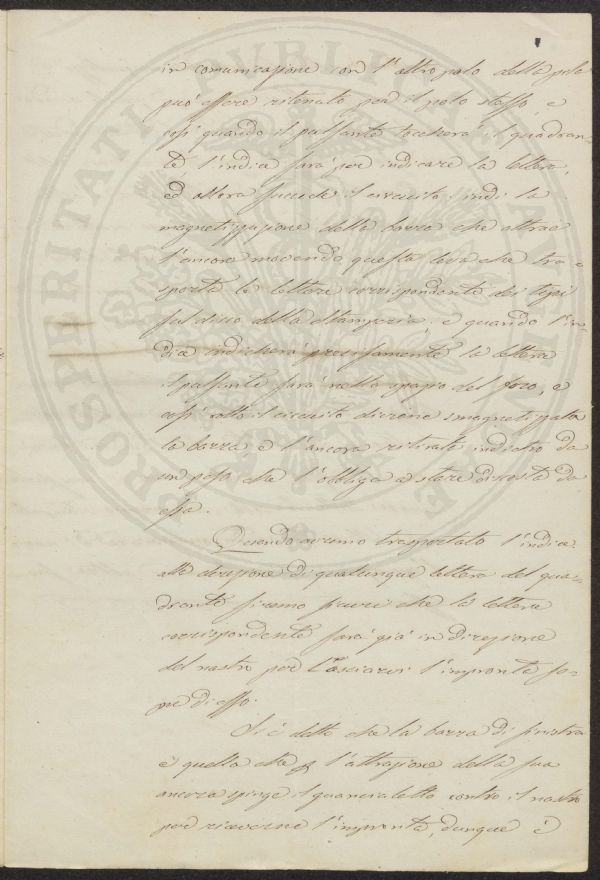 in comunicazione con l'altro polo della pila
può essere ritenuto per il polo stesso, e
così quando il pulsante toccherà il quadran=
te, l'indice sarà per indicare la lettera,
ed allora succede il circuito; indi la
magnetizzazione della barra che attrae
l'ancora movendo questa leva che tra=
sporta le lettere corrispondente dei tipi
sul disco della Stamperia; e quando l'in=
dice indicherà precisamente la lettera
il pulsante sarà nello spazio del foro, e
così rotto il circuito diviene smagnetizzata
la barra e l'ancora ritirata indietro da
un peso che l'obbliga a stare discosta da
essa.
Quando avremo trasportato l'indice
alla direzione di qualunque lettera del qua=
drante saremo sicuri che la lettera
corrispondente sarà già in direzione
del nastro per lasciarvi l'impronta so=
pra di esso.
Si è detto che la barra di sinistra
è quella che l'attrazione della sua
ancora spinge il guancialetto contro il nastro
per riceverne l'impronta, dunque è
PROSPERITATI PUBLICAE AUGENDAE